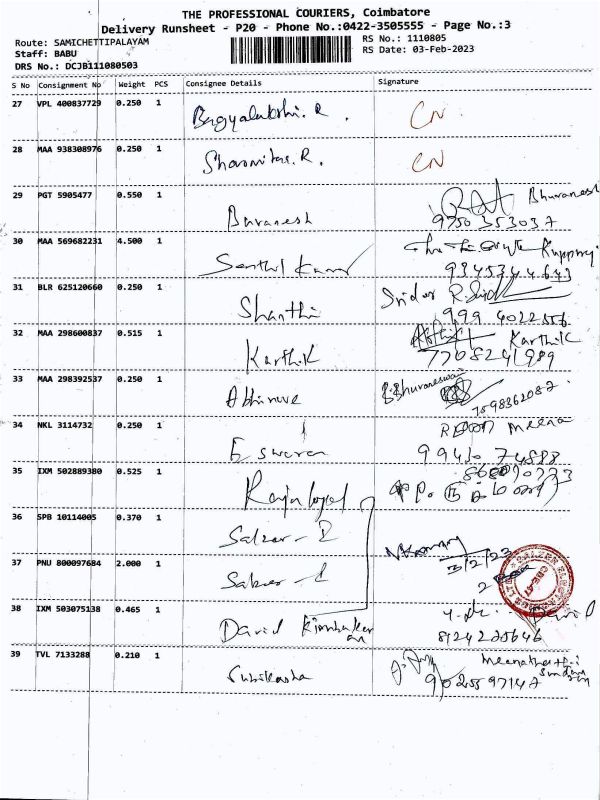 THE PROFESSIONAL COURIERS, Coimbatore
Delivery Runsheet - P20 - Phone No.:0422-3505555 - Page No.:3
Route: SAMICHETTIPALAYAM
Staff: BABU
DRS No.: DCJB111080503
RS No.: 1110805
RS Date: 03-Feb-2023
S No Consignment No Weight PCS Consignee Details Signature
27 VPL 400837729 0.250 1 Bagyalakshi. R. CN
28 MAA 938308976 0.250 1 Sharmitas. R. CN
29 PGT 5905477 0.550 1 Buvanesh Bhuvanesh
9750353037
30 MAA 569682231 4.500 1 Senthil Kumar
9345344643
31 BLR 625120660 0.250 1 Shanthi Sridar
999 4022556
32 MAA 298600837 0.515 1 Karthik Karthik
7708241989
33 MAA 298392537 0.250 1 Bhuvaneswari
7598362082
34 NKL 3114732 0.250 1 Eswaran Meena
99430 74888
35 IXM 502889380 0.525 1 Rajagopal
36 SPB 10114005 0.370 1 Salzer - E
37 PNU 800097684 2.000 1 Salzer - E 3/2/23
38 IXM 503075138 0.465 1 David David
8124225646
39 TVL 7133288 0.210 1 Subikasha
9025597147